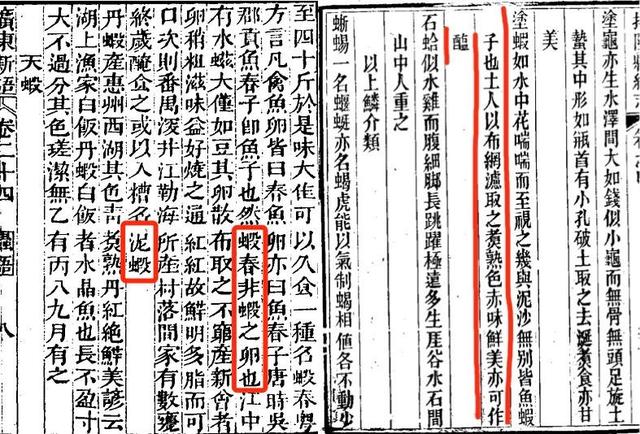 塗龜亦生水澤間大如錢似小龜而無骨無頭足旋土
蟄其中形如瓶首有小孔破土取之去涎煮食亦甘
美
塗蝦如水中花喘喘而至視之幾與泥沙無別皆魚蝦
子也土人以布網濾取之煑熟色赤味鮮美亦可作
醢
石蛤似水雞而腹細脚長跳躍極遠多生崖谷水石間
山中人重之
以上鱗介類
蜥蜴一名蝘蜓亦名蝎虎能以氣制蝎相值各不動少
至四十斤於是味大佳可以久食一種名蝦春粤
方言凡禽魚卵皆曰春魚卵亦曰魚春子唐時吳
郡貢魚春子卽魚子也然蝦春非蝦之卵也江中
有水螆大僅如豆其卵散布取之不竭產新會者
卵稍粗滋味益好燒之通紅紅故鮮明多脂而可
口次則番禺深井江勒海所產村落間家有數甕
終歲醃食之或以入糟名泥蝦
丹蝦產惠州西湖其色青煑熟丹紅絶鮮美諺云
湖上漁家白飯丹蝦白飯者水晶魚也長不盈寸
大不過分其色瑳潔無乙有丙八九月有之
天蝦
廣東新語 卷二十四 蟲語 八